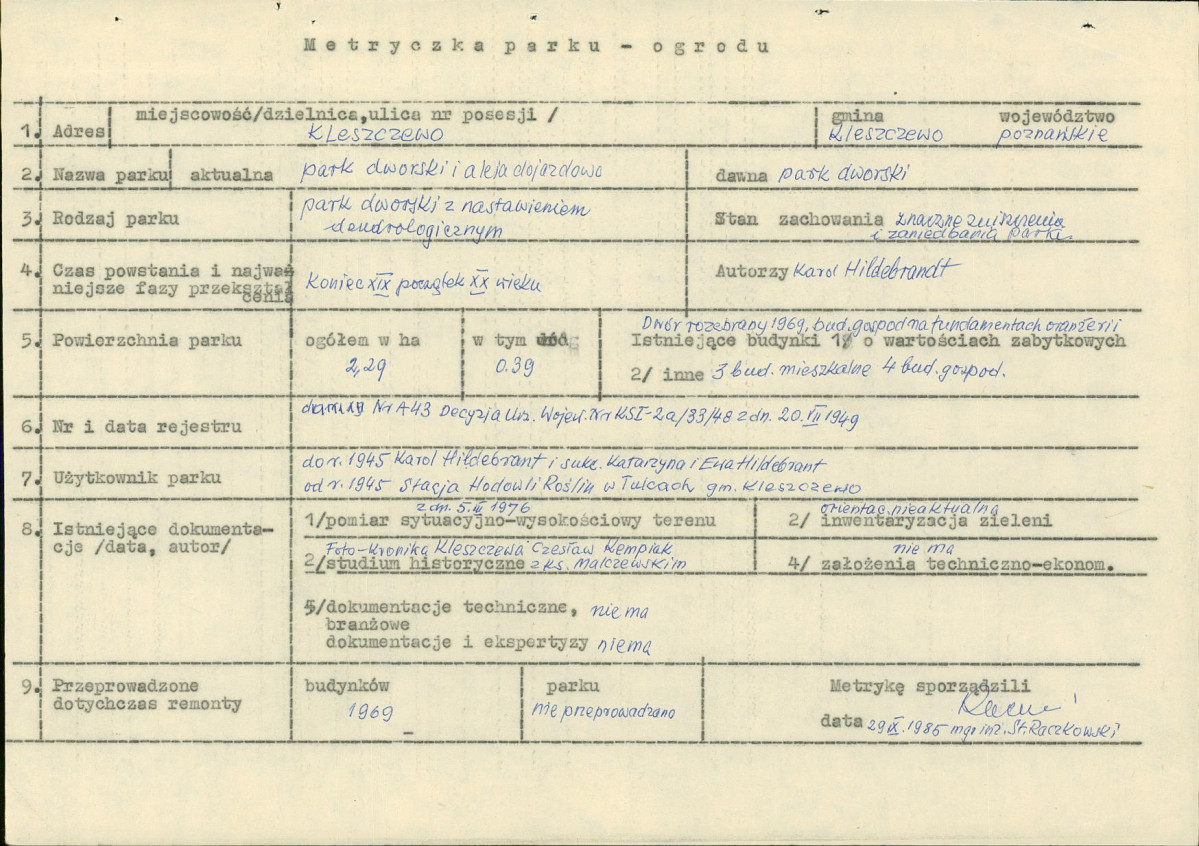 Metryczka parku - ogrodu
miejscowość/dzielnica,ulica nr posesji / gmina województwo
1. Adres Kleszczewo Kleszczewo poznańskie
2. Nazwa parku aktualna park dworski i aleja dojazdowa dawna park dworski
3. Rodzaj parku park dworski z nastawieniem dendrologicznym Stan zachowania znaczne zniszczenia
i zaniedbania parku
4. Czas powstania i najważ Koniec XIX początek XX wieku Autorzy Karol Hildebrandt
niejsze fazy przekształ
cenia
Dwór rozebrany 1969, bud. gospod na fundamentach oranżerii
5. Powierzchnia parku ogółem w ha w tym Istniejące budynki 1/ o wartościach zabytkowych
2,29 0.39 2/ inne 3 bud. mieszkalne 4 bud. gospod.
6. Nr i data rejestru Nr A43 Decyzja Urz. Wojew. Nr KSI-2a/33/48 z dn. 20.VII 1949
7. Użytkownik parku do r. 1945 Karol Hildebrant i sukc. Katarzyna i Ewa Hildebrant
od r. 1945 Stacja Hodowli Roślin w Tulcach gm. Kleszczewo
z dn. 5.III 1976 orientac. nieaktualna
8. Istniejące dokumenta- 1/pomiar sytuacyjno-wysokościowy terenu 2/ inwentaryzacja zieleni
cje /data, autor/
Foto-Kronika Kleszczewa Czesław Kempiak nie ma
2/studium historyczne z ks. Malczewskim 4/ założenia techniczno-ekonom.
5/dokumentacje techniczne, nie ma
branżowe
dokumentacje i ekspertyzy nie ma
9. Przeprowadzone budynków parku Metrykę sporządzili
dotychczas remonty 1969 nie przeprowadzano
data 29 IX. 1985 mgr inż. St. Raczkowski